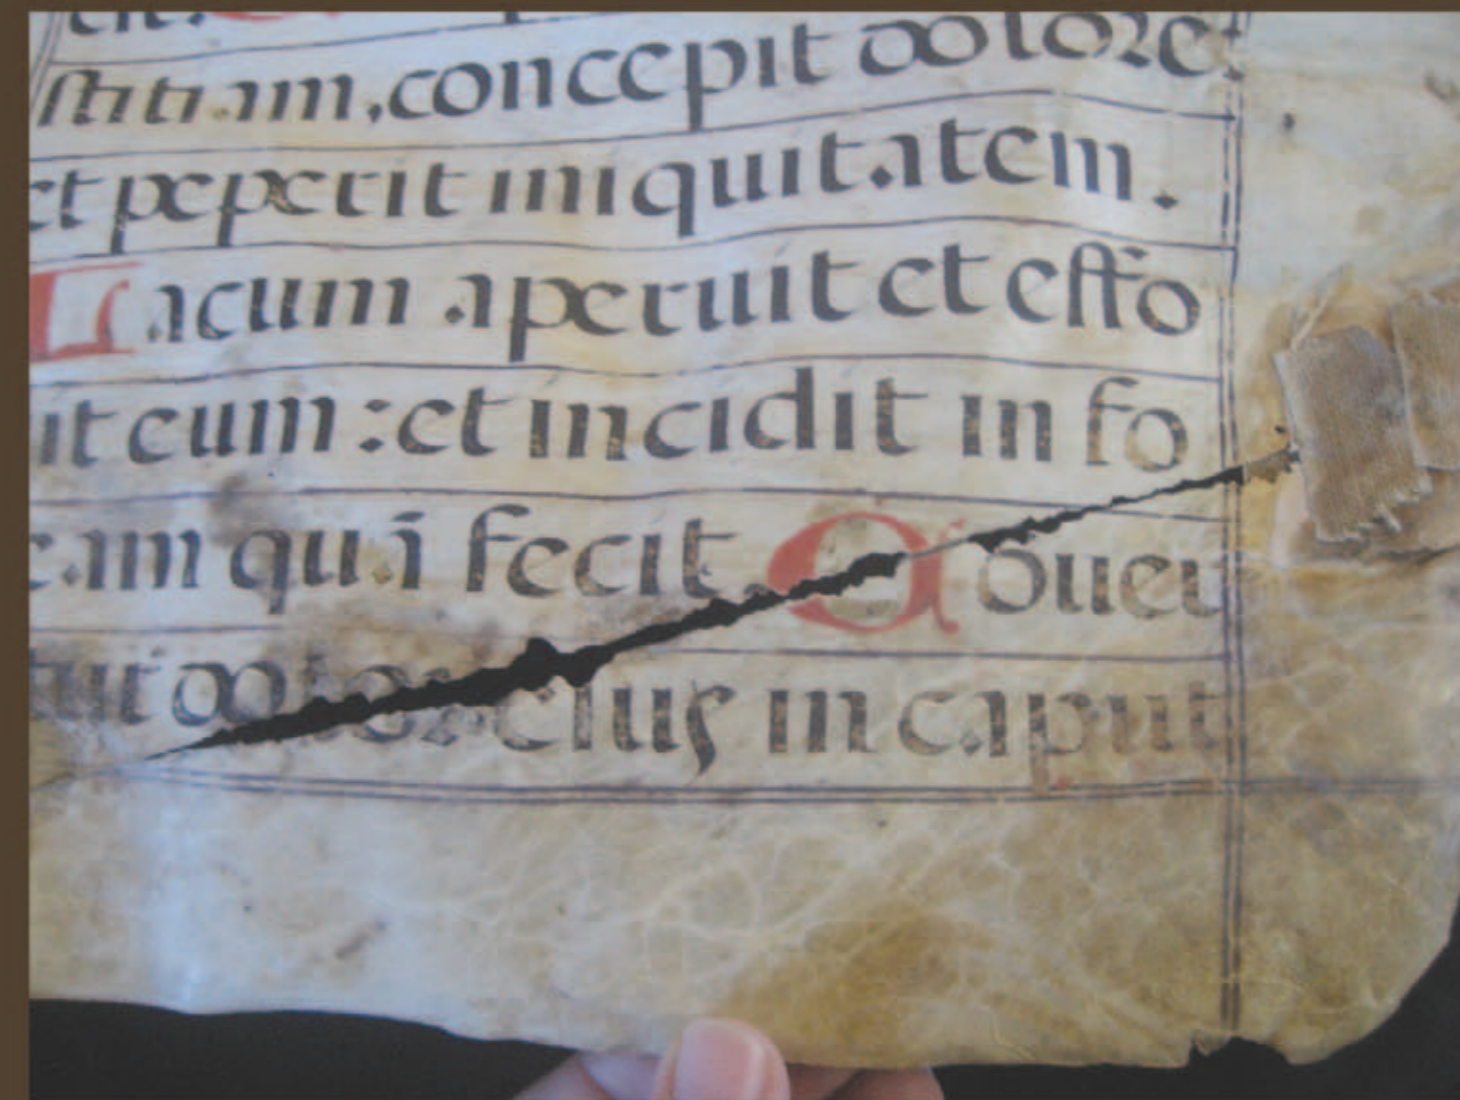 stitiam, concepit dolore:
et peperit iniquitatem.
Lacum aperuit et effo
it eum: et incidit in fo
eam quā fecit. Couer
tur dolor eius in caput